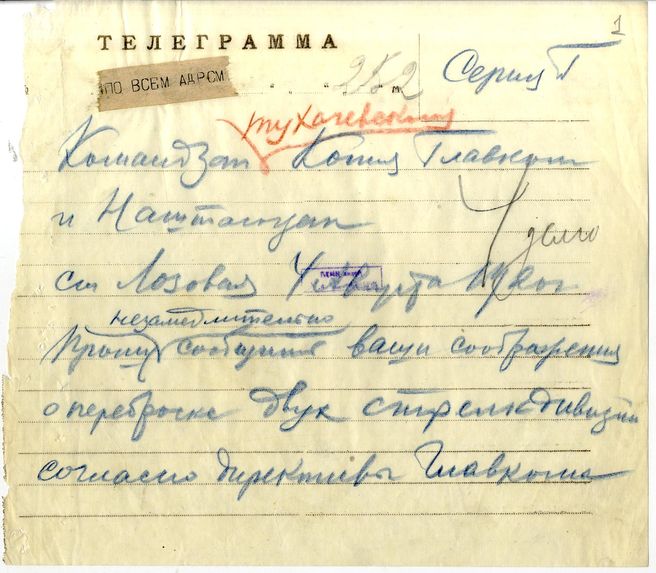 1
ТЕЛЕГРАММА
ПО ВСЕМ АДРСМ
252
Серия Г
Тухачевский
Командзап Копия Главком
и Наштаюзап
ст Лозовая 4 августа 1920г
дело
незамедлительно
Прошу сообщить ваши соображения
о переброске двух стрелкдивизии
согласно директивы Главкома